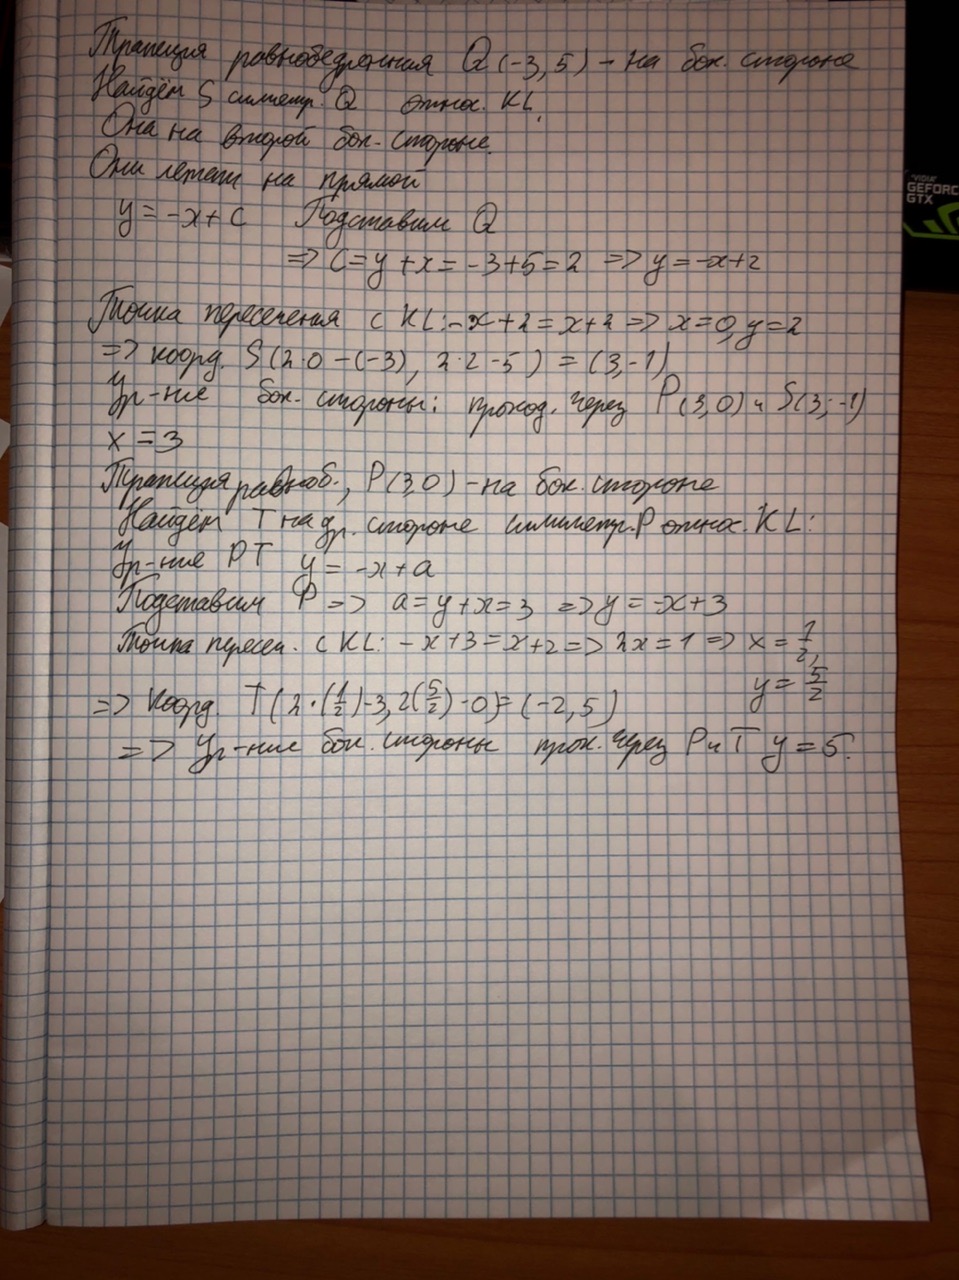 Трапеция равнобедренная Q(-3,5) - на бок. стороне
Найдём S симметр. Q относ. KL.
Она на второй бок. стороне.
Они лежат на прямой
y = -x + C Подставим Q
=> C = y + x = -3+5 = 2 => y = -x+2
Точка пересечения с KL: -x+2 = x+2 => x=0, y=2
=> коорд. S(2·0-(-3), 2·2-5) = (3,-1)
Ур-ние бок. стороны: проход. через P(3,0) и S(3;-1)
x = 3
Трапеция равноб., P(3,0) - на бок. стороне
Найдём T на др. стороне симметр. P относ. KL:
Ур-ние PT y = -x+a
Подставим P => a = y+x = 3 => y = -x+3
Точка пересеч. с KL: -x+3 = x+2 => 2x = 1 => x = 1/2,
y = 5/2
=> Коорд. T(2·(1/2)-3, 2(5/2)-0) = (-2,5)
=> Ур-ние бок. стороны прох. через P и T y = 5.
"VIDIA"
GEFORC
GTX